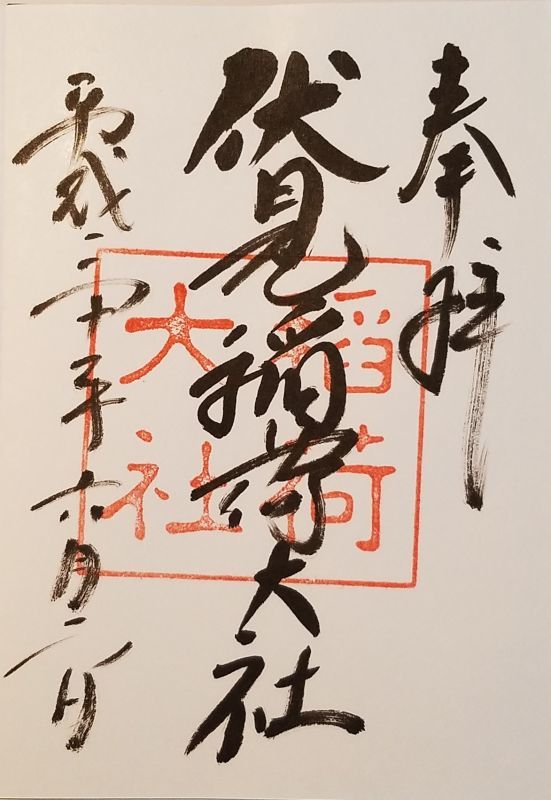 奉拝
伏見稲荷大社
稲荷
大社
平成三十年